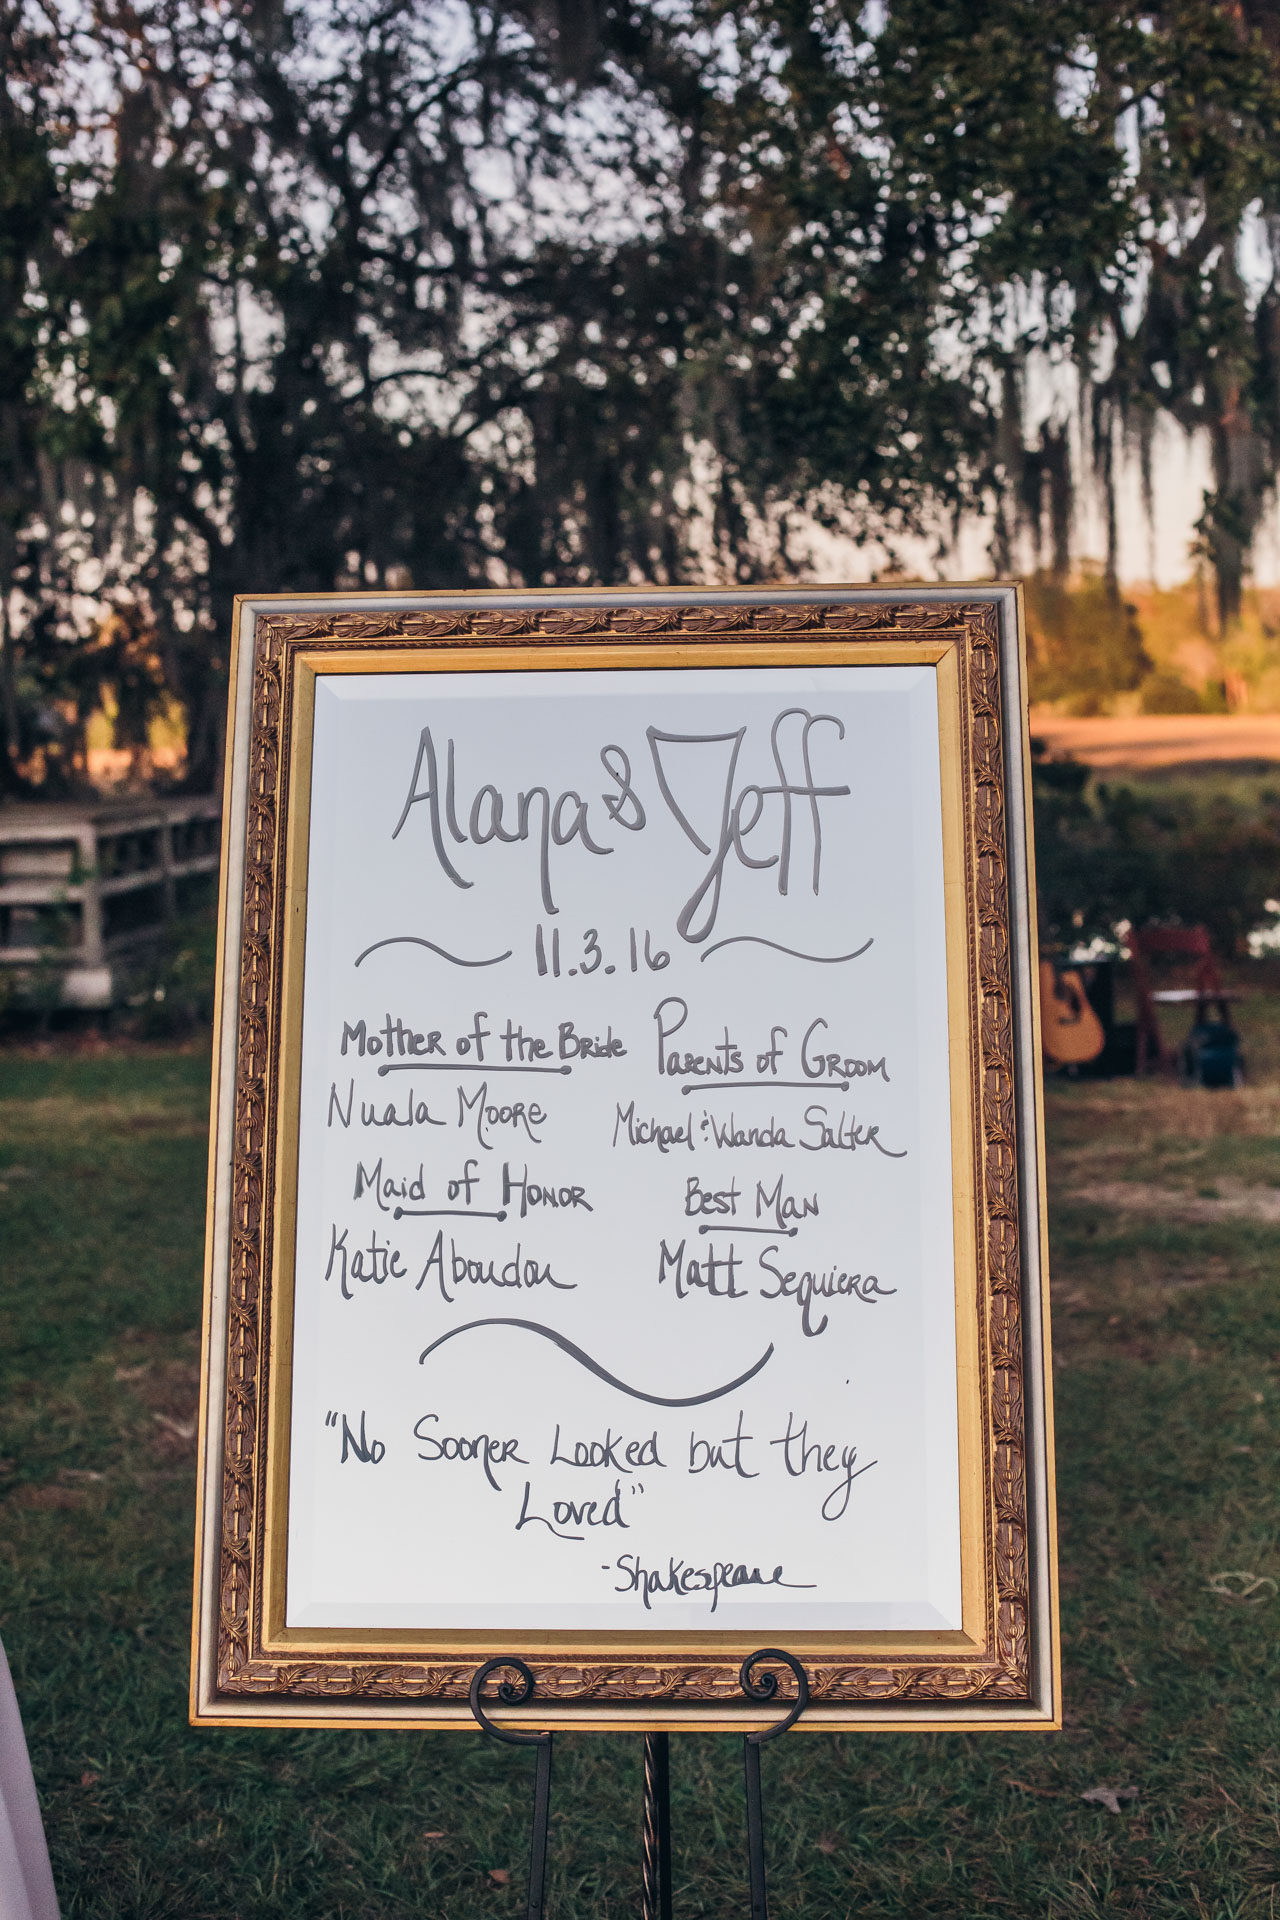 Alana & Jeff
11.3.16
Mother of the Bride
Nuala Moore
Parents of Groom
Michael & Wanda Salter
Maid of Honor
Katie Aboudou
Best Man
Matt Sequiera
"No Sooner Looked but they
Loved"
-Shakespeare